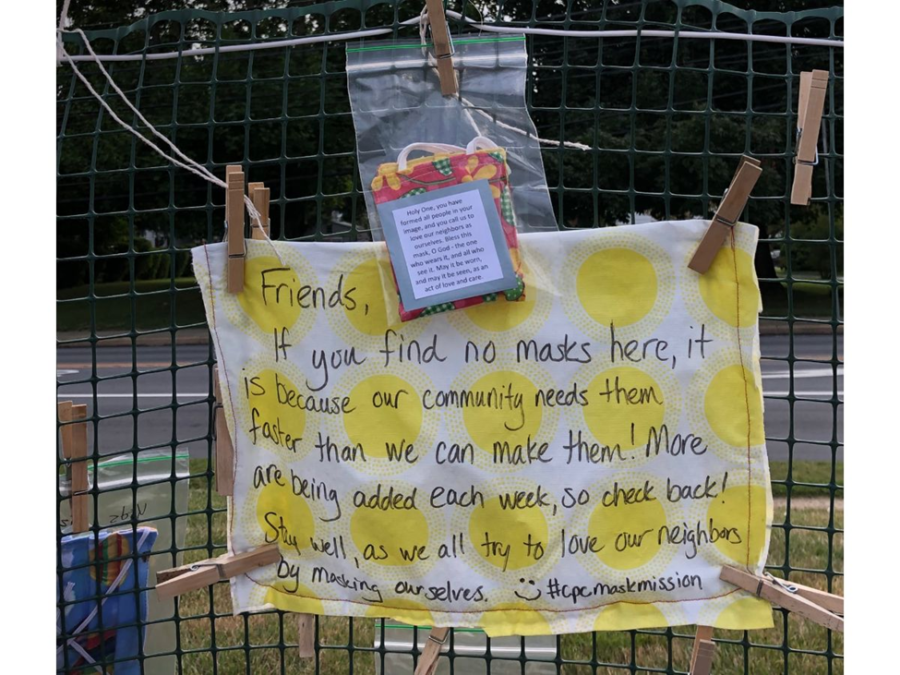 Holy One, you have
formed all people in your
image, and you call us to
love our neighbors as
ourselves. Bless this
mask, O God - the one
who wears it, and all who
see it. May it be worn,
and may it be seen, as an
act of love and care.
Friends,
If you find no masks here, it
is because our community needs them
faster than we can make them! More
are being added each week, so check back!
Stay well, as we all try to love our neighbors
by masking ourselves. #cpcmaskmission